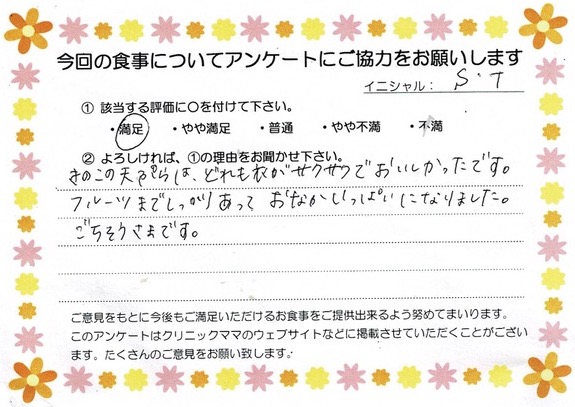 今回の食事についてアンケートにご協力をお願いします
イニシャル： S・T
① 該当する評価に○を付けて下さい。
・満足 ・やや満足 ・普通 ・やや不満 ・不満
② よろしければ、①の理由をお聞かせ下さい。
きのこの天ぷらは、どれも衣がサクサクでおいしかったです。
フルーツまでしっかりあって おなかいっぱいになりました。
ごちそうさまです。
ご意見をもとに今後もご満足いただけるお食事をご提供出来るよう努めてまいります。
このアンケートはクリニックママのウェブサイトなどに掲載させていただくことがござい
ます。たくさんのご意見をお願い致します。